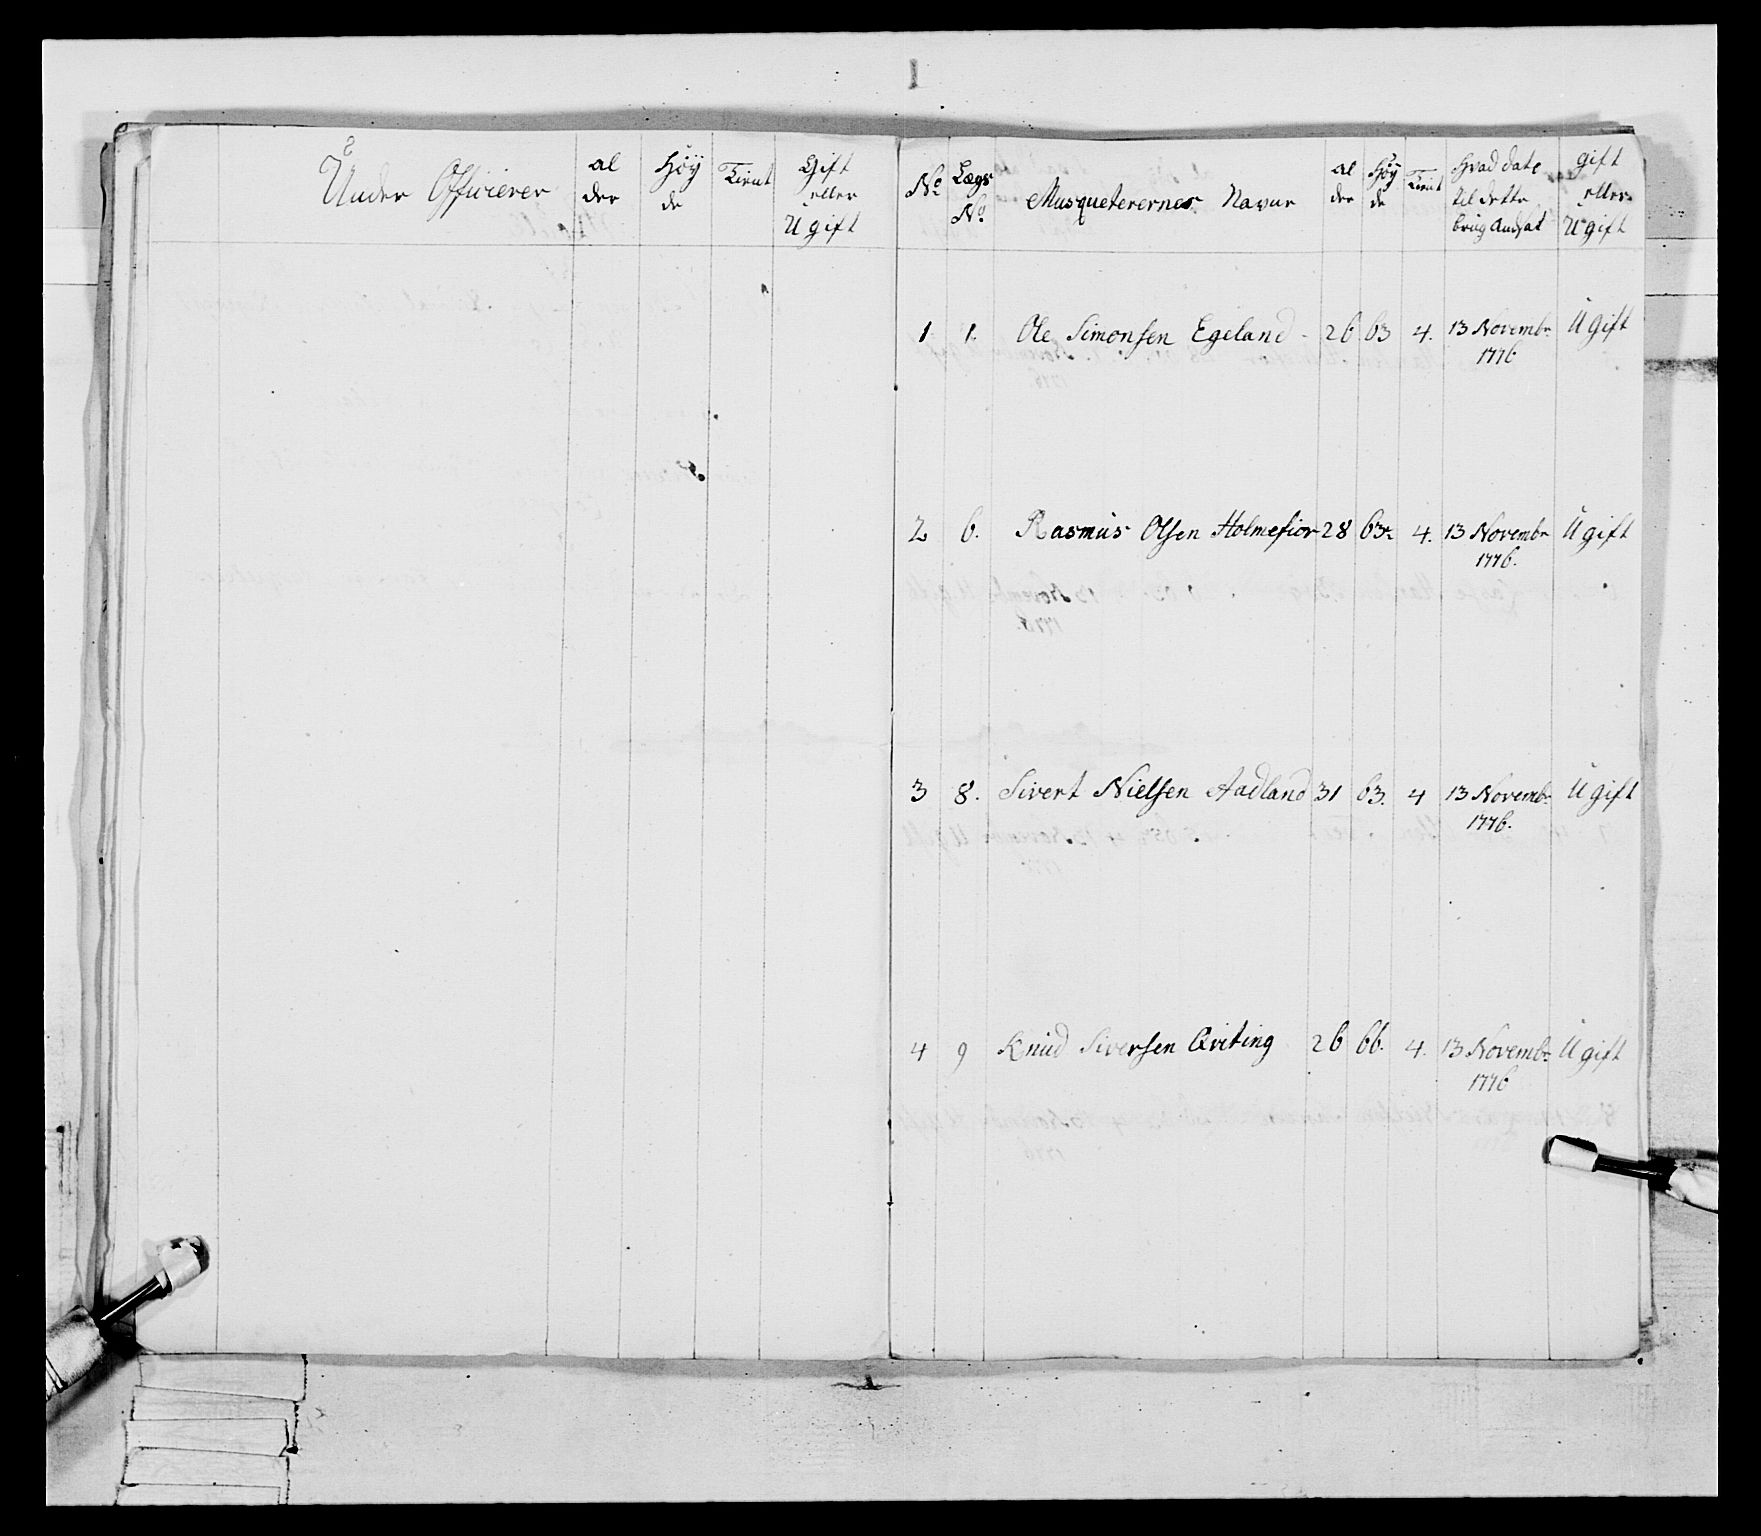 Under Officierer
Al
der
Høy
de
Tient
Gift
eller
Ugift
No
Lægs
No
Musqueterernes Navne
Al
der
Høy
de
Tient
Hvad date
til dette
brug Andsat
gift
eller
Ugift
1 1. Ole Simonsen Egeland 26 63 4. 13 Novembr Ugift
1776
2 6. Rasmus Olsen Holmefior 28 63 4. 13 Novembr Ugift
1776.
3 8. Sivert Nielsen Aadland 31 63. 4 13 Novembr Ugift
1776.
4 9 Knud Siversen Qviting 26 66. 4. 13 Novembr Ugift
1776